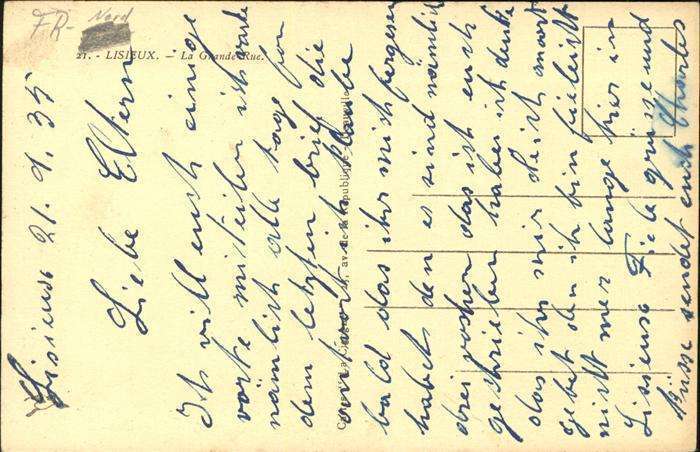 FR- Nord
21. - LISIEUX. - La Grande Rue.
Lisieux 21. 9. 35
Liebe Eltern
Ich will euch einige
worte mitteilen ich warte
nämlich alle tage for
dem letzten brief die
antwort ich glaube
bald das ihr mich fergesen
habet den es sind nämlich
drei woschen das ich euch
geschrieben habe ich denke
das ihr mir gleich antwort
gebet den ich bin fieleicht
nicht mer lange hier in
Lissieux Fiele grüsse und
Küsse sendet euch Charles
av. de la République